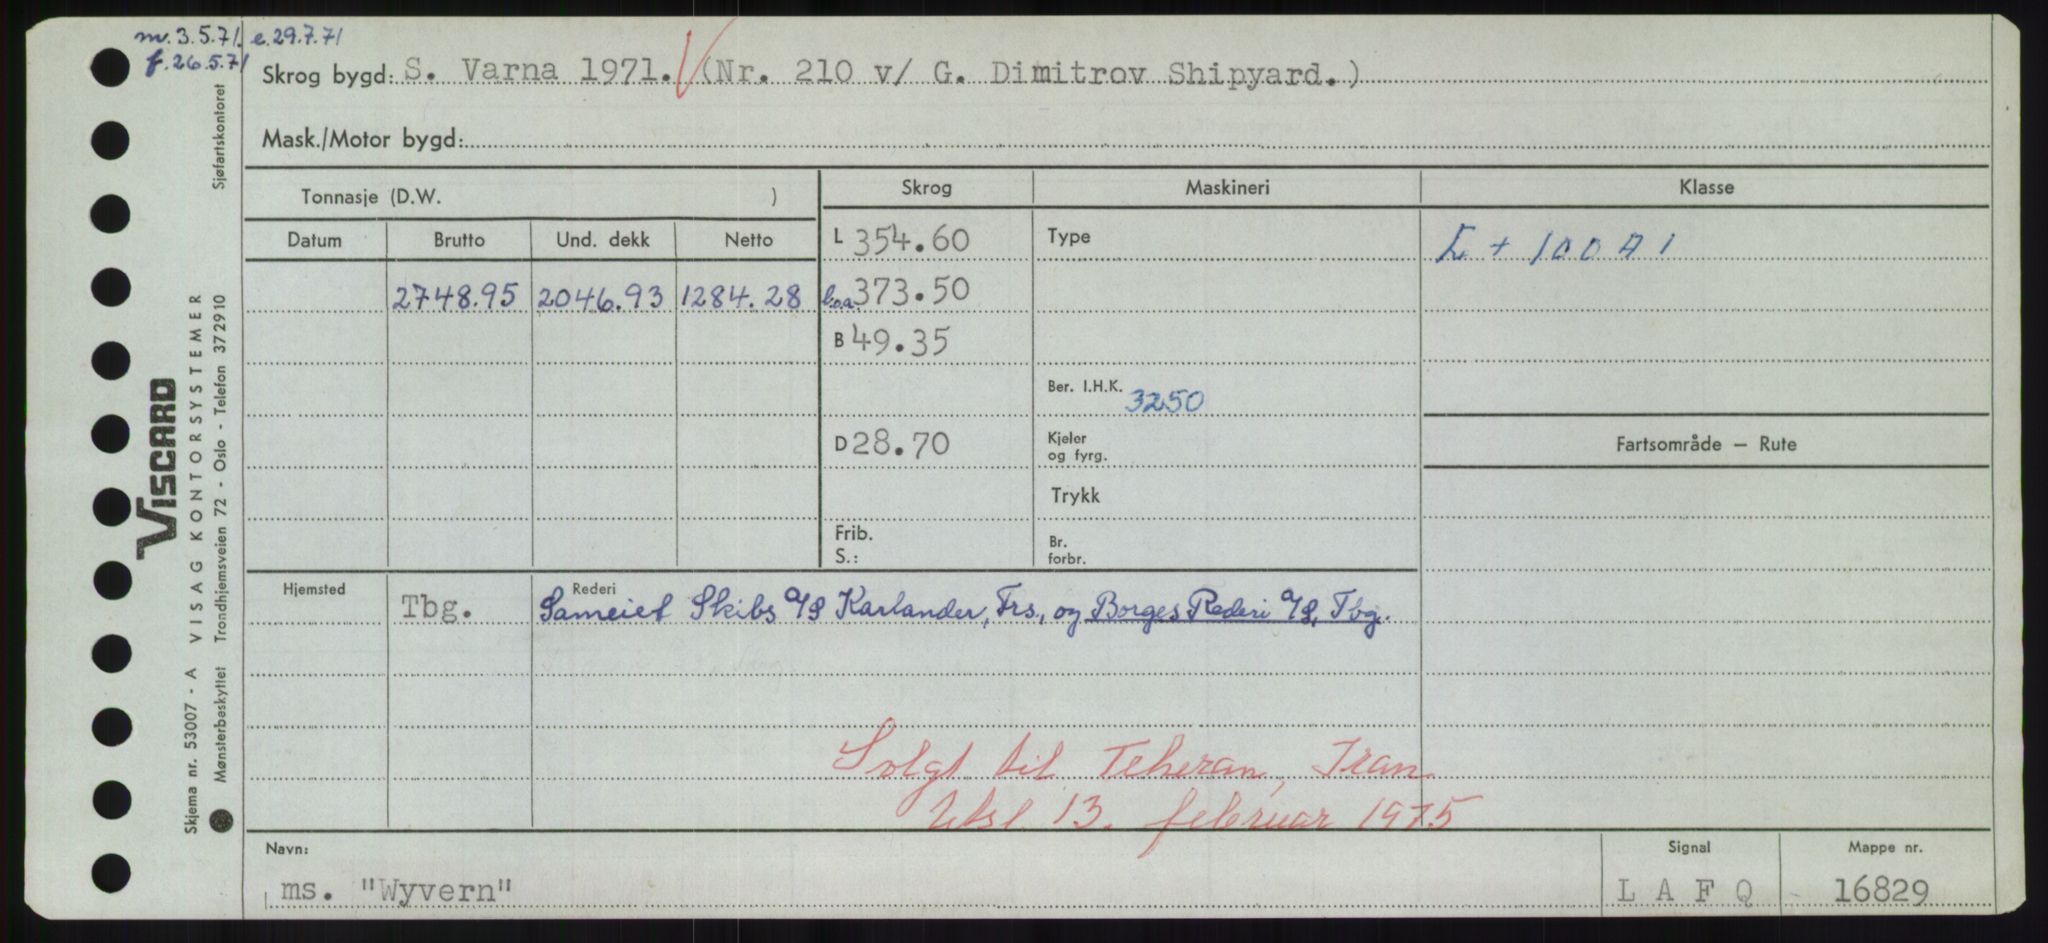 m. 3.5.71. e. 29.7.71
f. 26.5.71
Skrog bygd: S. Varna 1971. (Nr. 210 v/ G. Dimitrov Shipyard.)
Mask./Motor bygd:
Tonnasje (D.W. )
Skrog
Maskineri
Klasse
Datum
Brutto
Und. dekk
Netto
L 354.60
Type
L + 100 A 1
2748.95
2046.93
1284.28
l.o.a. 373.50
B 49.35
Ber. I.H.K. 3250
D 28.70
Kjeler
og fyrg.
Fartsområde – Rute
Trykk
Frib.
S.:
Br.
forbr.
Hjemsted
Tbg.
Rederi
Sameiet Skibs A/S Karlander, Frs., og Borges Rederi A/S, Tbg.
Solgt til Teheran, Iran
Utsl. 13. februar 1975
Navn:
ms. "Wyvern"
Signal
L A F Q
Mappe nr.
16829
Skjema nr. 53007 - A VISAG KONTORSYSTEMER
Mønsterbeskyttet Trondhjemsveien 72 - Oslo - Telefon 37 29 10 Sjøfartskontoret
VISCARD